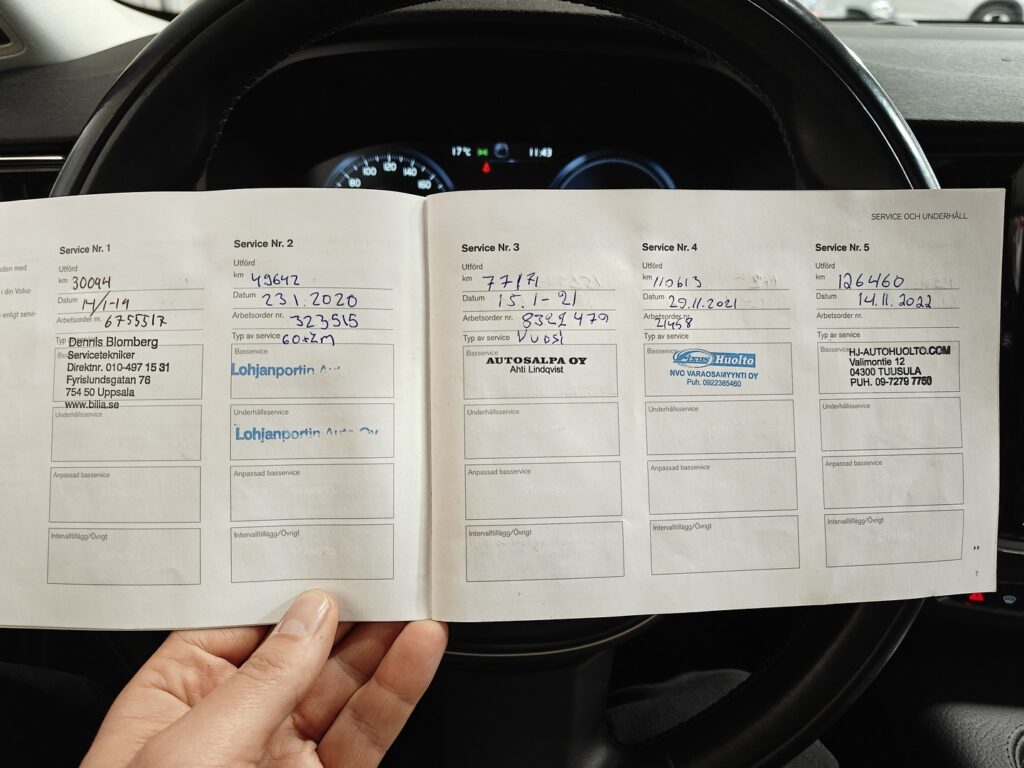 17°C 11:43
80 100 120 140 160
SERVICE OCH UNDERHÅLL
nden med
i din Volvo
enligt servi-
Service Nr. 1
Utförd
km 30094
Datum 14/1-19
Arbetsorder nr. 6755517
Typ
Dennis Blomberg
Servicetekniker
Direktnr. 010-497 15 31
Fyrislundsgatan 76
754 50 Uppsala
www.bilia.se
Underhållsservice
Anpassad basservice
Intervalltillägg/Övrigt
Service Nr. 2
Utförd
km 49642
Datum 23.1.2020
Arbetsorder nr. 323515
Typ av service
Basservice
Lohjanportin
Underhållsservice
Lohjanportin Auto Oy
Anpassad basservice
Intervalltillägg/Övrigt
Service Nr. 3
Utförd
km 77171
Datum 15.1-21
Arbetsorder nr. 8322479
Typ av service Vuosi
Basservice
AUTOSALPA OY
Ahti Lindqvist
Underhållsservice
Anpassad basservice
Intervalltillägg/Övrigt
Service Nr. 4
Utförd
km 110613
Datum 29.11.2021
Arbetsorder nr. 21458
Typ av service
Basservice
Fixus Huolto
NVO VARAOSAMYYNTI OY
Puh. 0922385460
Underhållsservice
Anpassad basservice
Intervalltillägg/Övrigt
Service Nr. 5
Utförd
km 126460
Datum 14.11.2022
Arbetsorder nr.
Typ av service
Basservice
HJ-AUTOHUOLTO.COM
Valimontie 12
04300 TUUSULA
PUH. 09-7279 7750
Underhållsservice
Anpassad basservice
Intervalltillägg/Övrigt
7